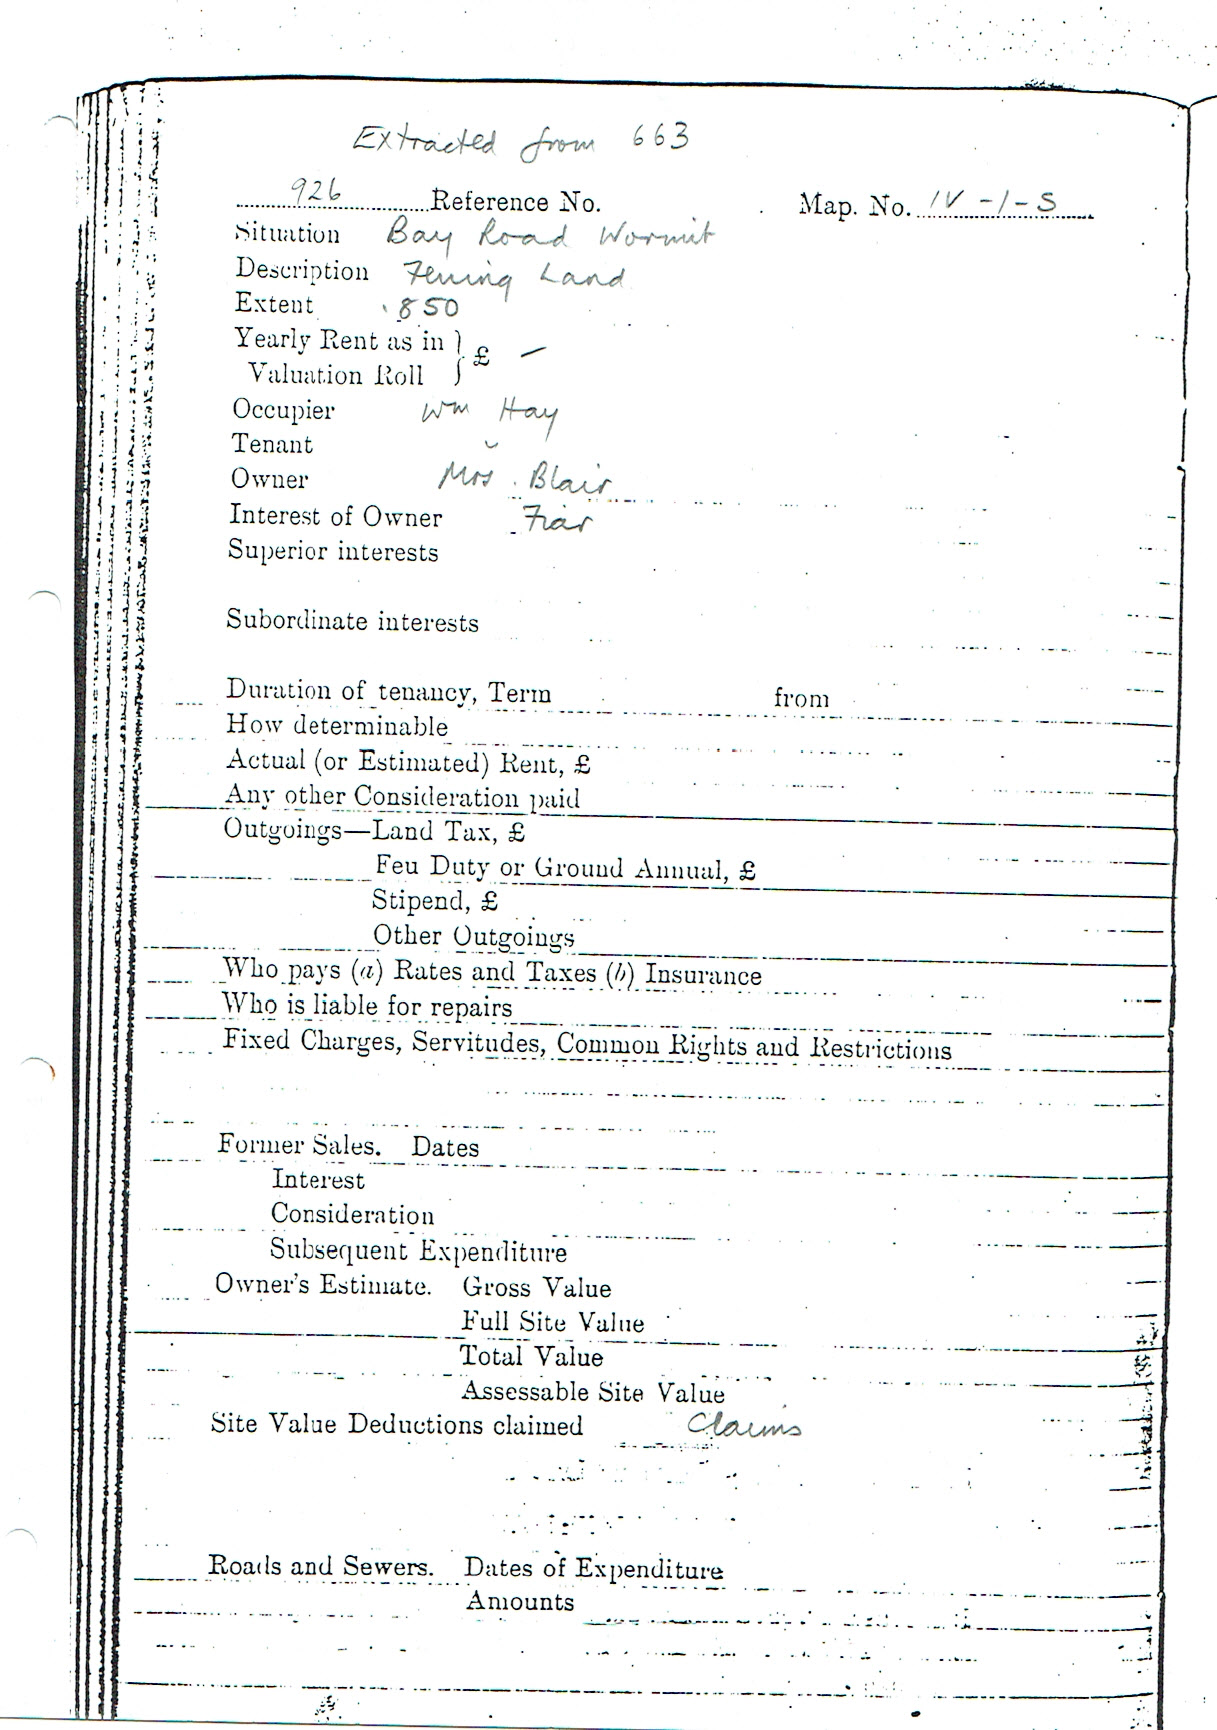 Extracted from 663
926 Reference No. Map. No. IV-1-S
Situation Bay Road Wormit
Description Feuing Land
Extent .850
Yearly Rent as in
Valuation Roll } £ –
Occupier Wm Hay
Tenant
Owner Mrs. Blair
Interest of Owner Fiar
Superior interests
Subordinate interests
Duration of tenancy, Term from
How determinable
Actual (or Estimated) Rent, £
Any other Consideration paid
Outgoings—Land Tax, £
Feu Duty or Ground Annual, £
Stipend, £
Other Outgoings
Who pays (a) Rates and Taxes (b) Insurance
Who is liable for repairs
Fixed Charges, Servitudes, Common Rights and Restrictions
Former Sales. Dates
Interest
Consideration
Subsequent Expenditure
Owner's Estimate. Gross Value
Full Site Value
Total Value
Assessable Site Value
Site Value Deductions claimed Claims
Roads and Sewers. Dates of Expenditure
Amounts